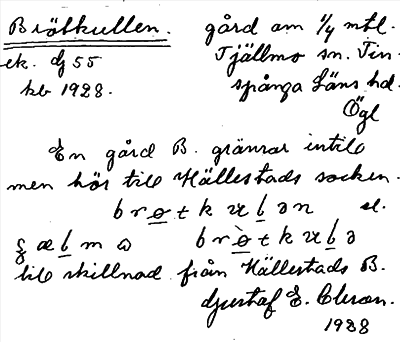 Brötkullen. gård om 1/4 mtl.
ek. dj 55 Tjällmo sn. Fin-
kb 1928. spånga Läns hd.
Ögl
En gård B. gränsar intill
men hör till Hällestads socken.
brøtkub̲ən el.
brøtkub̲ə
till skillnad från Hällestads B.
Gustaf E. Olsson.
1928